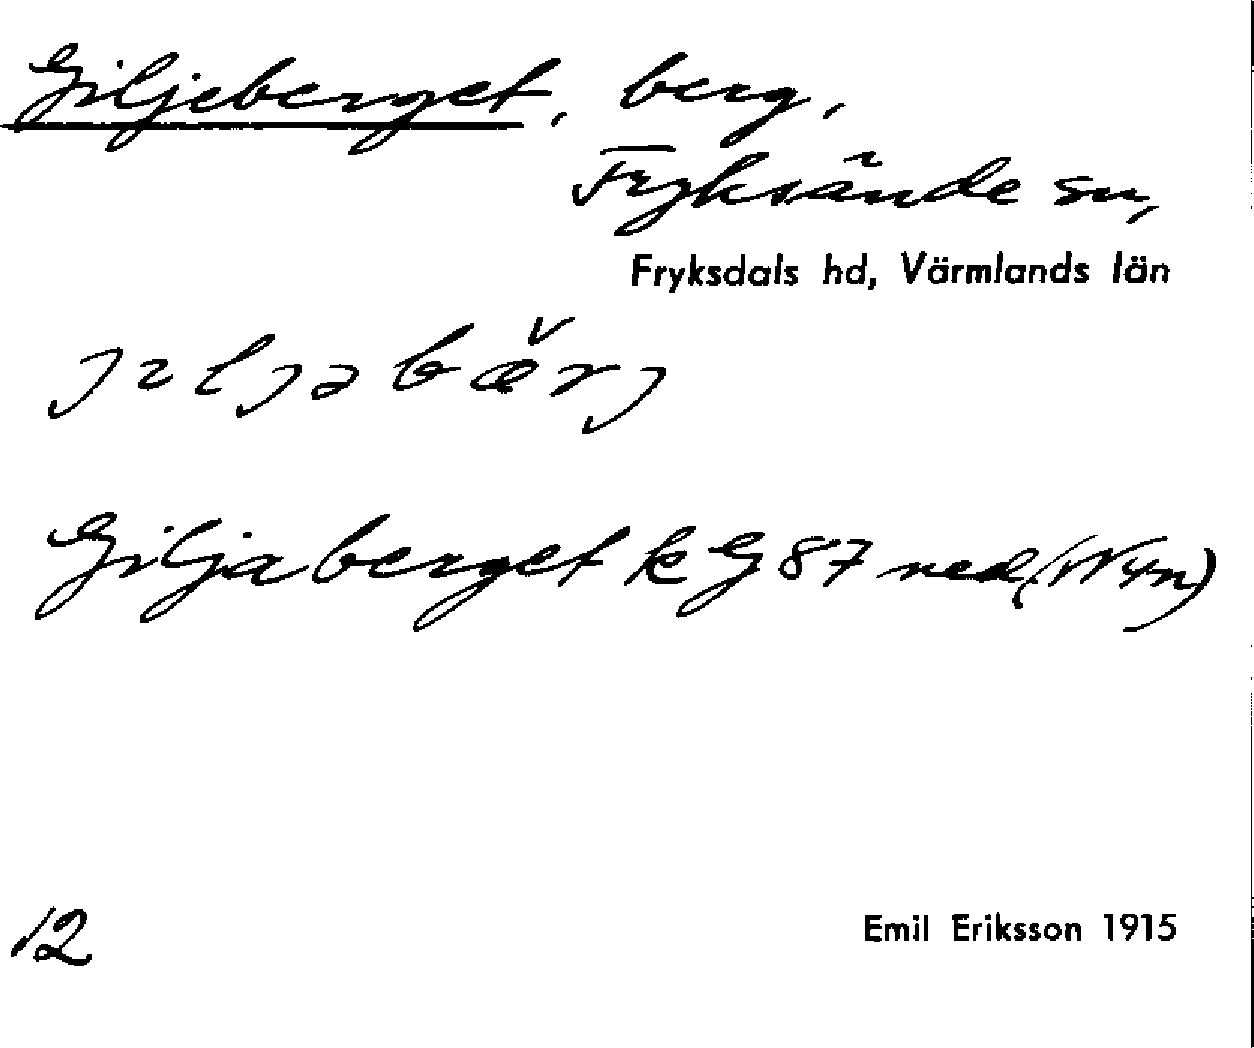 Giljeberget, berg,
Fryksände sn,
Fryksdals hd, Värmlands län
jıljabærj
Giljaberget k G 87 ned (N ym)
12
Emil Eriksson 1915